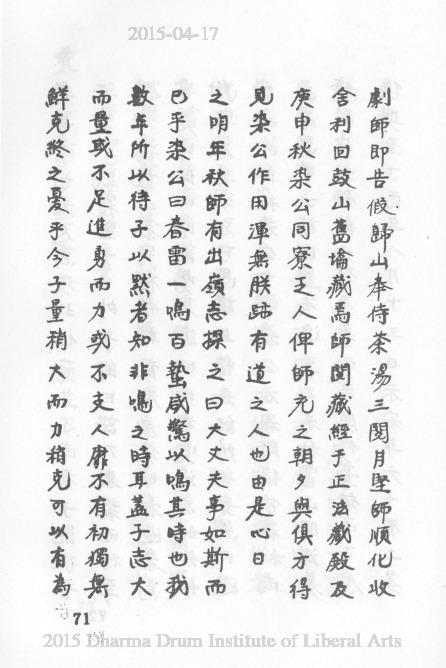 2015-04-17
劇師即告假歸山奉侍茶湯三閱月堅師順化收
舍利回鼓山舊墖藏焉師閱藏經于正法藏殿及
庚申秋染公同寮乏人俾師充之朝夕與俱方得
見染公作用渾無朕跡有道之人也由是心日
之明年秋師有出嶺志探之曰大丈夫事如斯而
已乎染公曰春雷一鳴百蟄咸驚以鳴其時也我
數年所以待子以默者知非鳴之時耳蓋子志大
而量或不足進勇而力或不支人靡不有初獨無
鮮克終之憂乎今子量稍大而力稍克可以有為
71
2015 Dharma Drum Institute of Liberal Arts